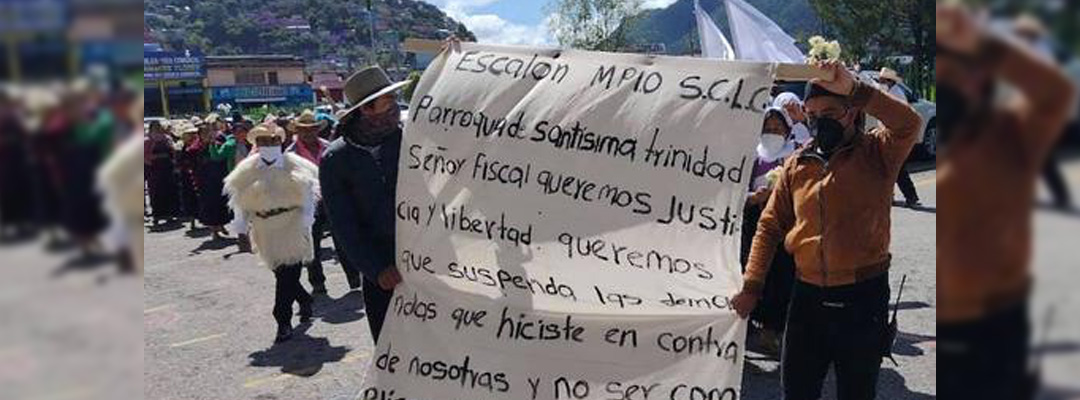 Escalón MPIO S.C.L.C.
Parroquia de santísima trinidad
Señor fiscal queremos Justi-
cia y libertad. queremos
que suspenda las dema
ndas que hiciste en contra
de nosotras y no ser com